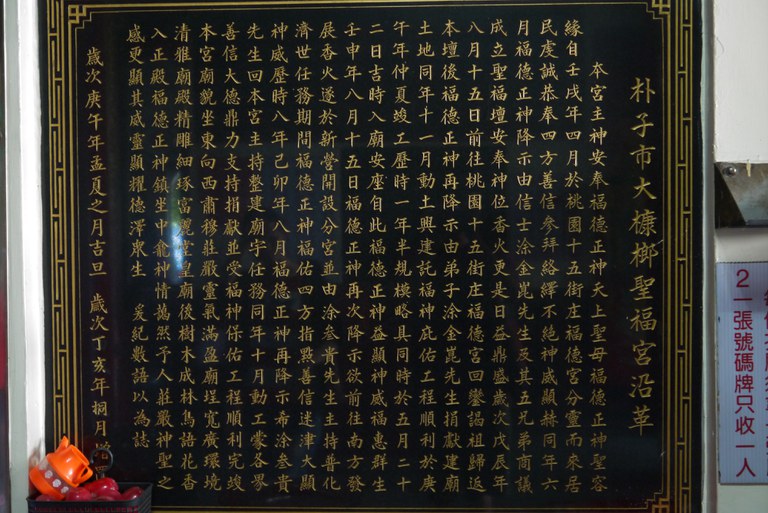 朴子市大槺榔聖福宮沿革
本宮主神安奉福德正神天上聖母福德正神聖容
緣自壬戌年四月於桃園十五街庄福德宮分靈而來居
民虔誠恭奉四方善信參拜絡繹不絕神威顯赫同年六
月福德正神降示由信士涂金崑先生及其五兄弟商議
成立聖福壇安奉神位香火更是日益鼎盛歲次戊辰年
八月十五日前往桃園十五街庄福德宮回鑾謁祖歸返
本壇後福德正神再降示由弟子涂金崑先生捐獻建廟
土地同年十一月動土興建託福神庇佑工程順利於庚
午年仲夏竣工歷時一年半規模略具同時於五月二十
二日吉時入廟安座自此福德正神益顯神威福惠群生
壬申年八月十五日福德正神再次降示欲前往南方發
展香火遂於新營開設分宮並由涂叁貴先生主持普化
濟世任務期間福德正神福佑四方指點善信迷津大顯
神威歷時八年己卯年八月福德正神再降示希涂叁貴
先生回本宮主持整建廟宇任務同年十月動工蒙各界
善信大德鼎力支持捐獻並受福神保佑工程順利完竣
本宮廟貌坐東向西肅穆莊嚴靈氣滿盈廟埕寬廣環境
清雅廟殿精雕細琢富麗堂皇廟後樹木成林鳥語花香
入正殿福德正神鎮坐中龕神情藹然予人莊嚴神聖之
感更顯其威靈顯耀德澤眾生 爰紀數語以為誌
歲次庚午年孟夏之月吉旦 歲次丁亥年桐月
2
一張號碼牌只收一人